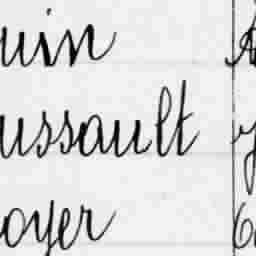 uin
ussault
oyer